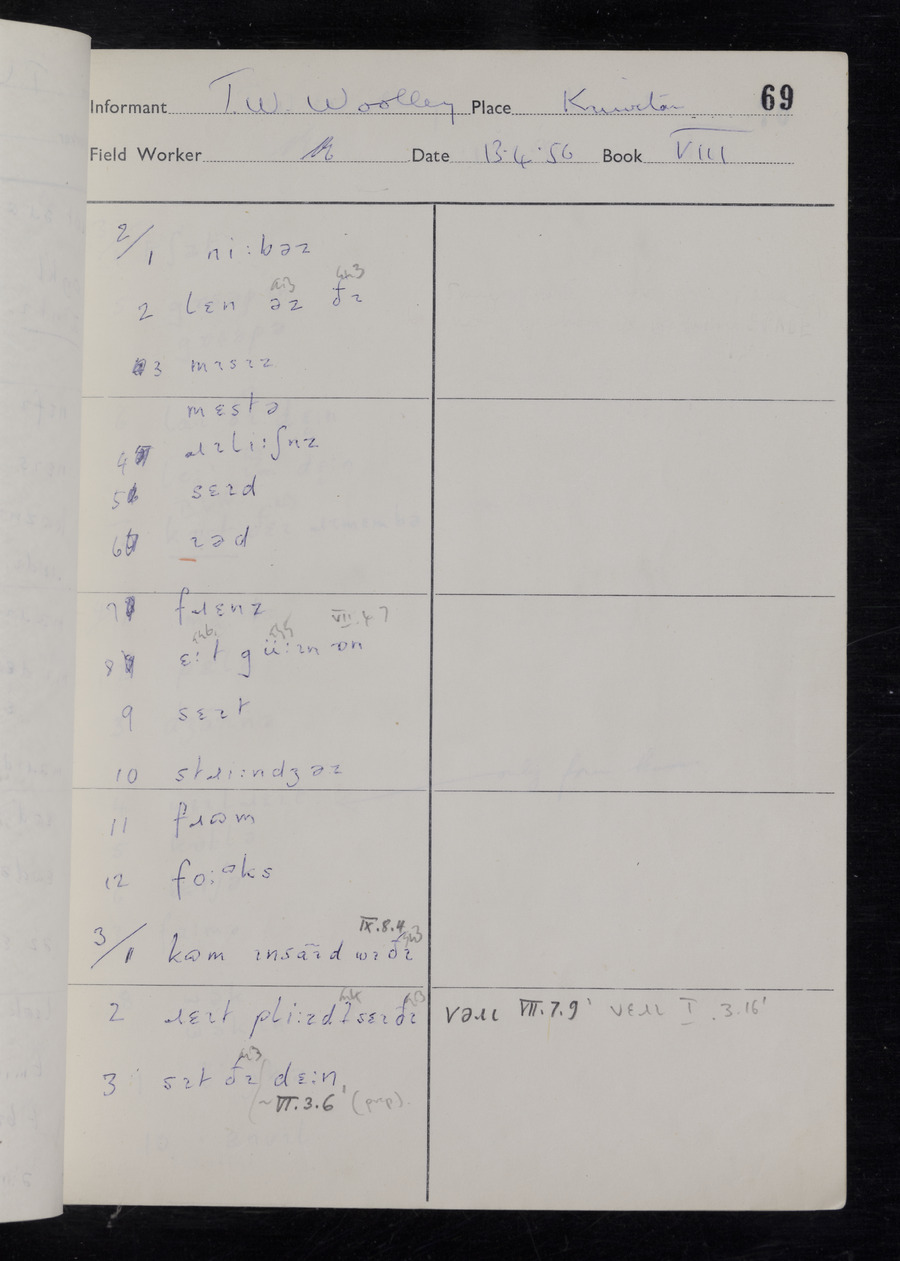 69
Informant T.W. Woolley Place Kniveton
Field Worker Date 13.4.56 Book VIII
2/1 niːbəɹ
2 lɛn əz ðɪ
3 mɪsɪz
mɛstə
4 ɹɪliːʃnz
5 sɛɪd
6 ɹəd
7 fɹɛnz
VII.4.7
8 ɛːt güːɪn ɒn
9 sɛɪt
10 stɹiːndʒəɹ
11 fɹɒm
12 foːᵊks
IX.8.4
3/1 kɒm ɪnsäɪd wɪ ðɪ
2 ɹɛɪt pliːɪdʔ sɛɪ ðɪ vəɹɪ VII.7.9' vɛɹɪ I.3.16'
3 sɪt ðɪ dɛːn
~ VI.3.6' (prep).